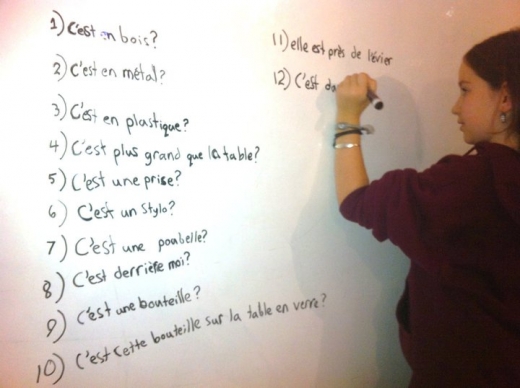 1) C'est en bois?
2) C'est en métal?
3) C'est en plastique?
4) C'est plus grand que la table?
5) C'est une prise?
6) C'est un stylo?
7) C'est une poubelle?
8) C'est derrière moi?
9) C'est une bouteille?
10) C'est cette bouteille sur la table en verre?
11) elle est près de l'évier
12) C'est da